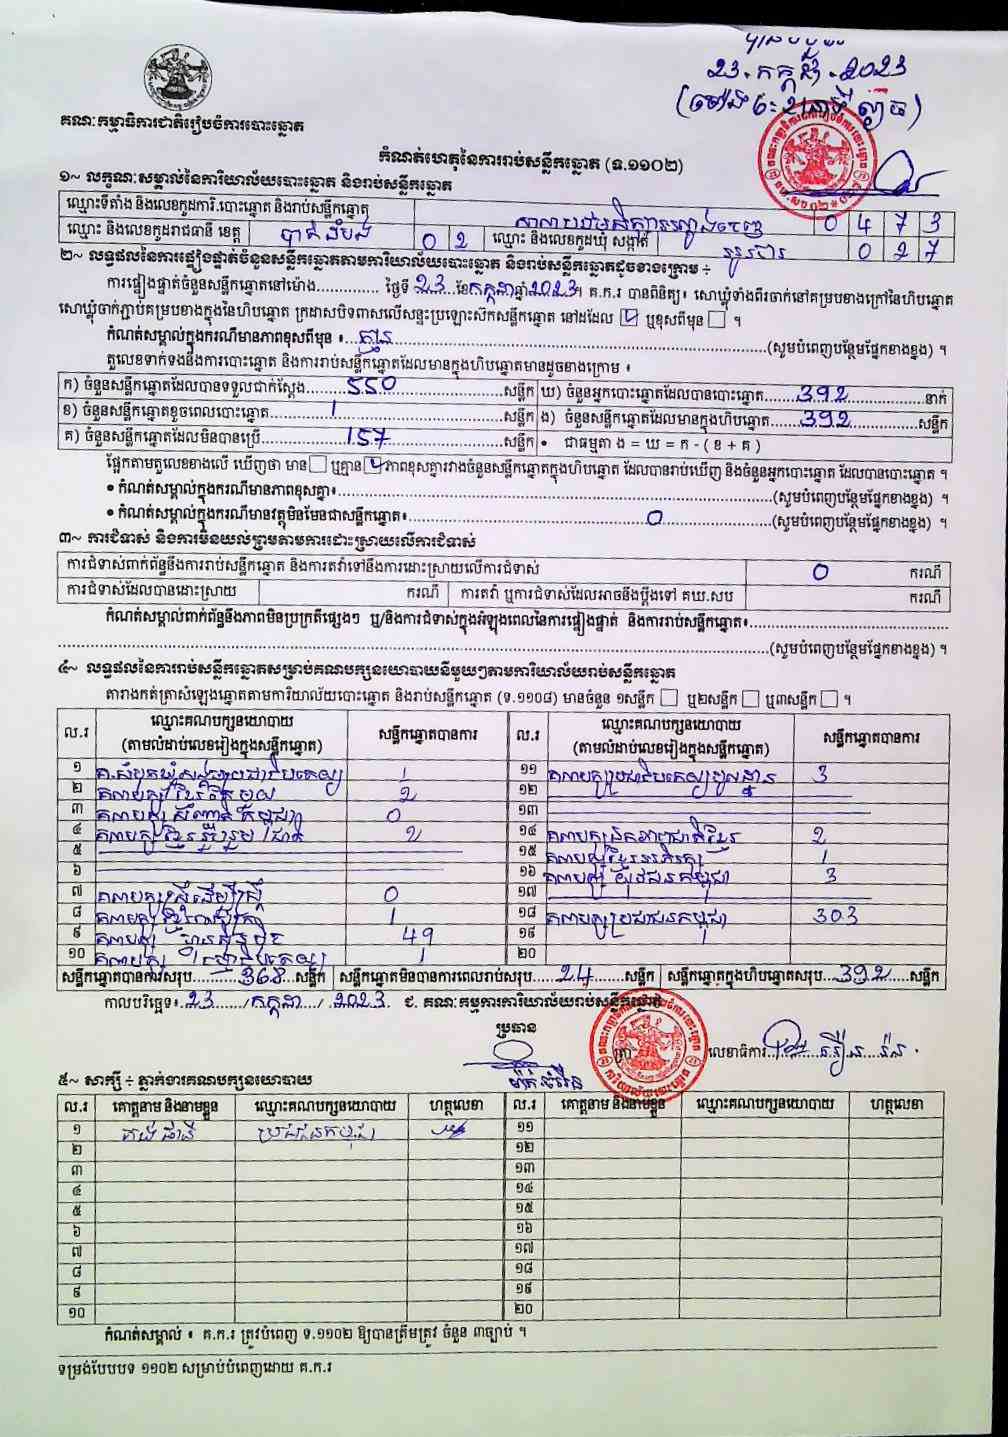 23.កក្កដា.2023
គណៈកម្មាធិការជាតិរៀបចំការបោះឆ្នោត
កំណត់ហេតុនៃការរាប់សន្លឹកឆ្នោត (ទ.១១០២)
១~ លក្ខណៈសម្គាល់នៃការិយាល័យបោះឆ្នោត និងរាប់សន្លឹកឆ្នោត
ឈ្មោះទីតាំង និងលេខកូដការិ.បោះឆ្នោត និងរាប់សន្លឹកឆ្នោត 0 4 7 3
ឈ្មោះ និងលេខកូដរាជធានី ខេត្ត បាត់ដំបង 0 2 ឈ្មោះ និងលេខកូដឃុំ សង្កាត់ 0 2 7
២~ លទ្ធផលនៃការផ្ទៀងផ្ទាត់ចំនួនសន្លឹកឆ្នោតតាមការិយាល័យបោះឆ្នោត និងរាប់សន្លឹកឆ្នោតដូចខាងក្រោម ÷
ការផ្ទៀងផ្ទាត់ចំនួនសន្លឹកឆ្នោតនៅម៉ោង.............. ថ្ងៃទី 23 ខែ កក្កដា ឆ្នាំ 2023។ គ.ក.រ បានពិនិត្យ៖ សោឃ្លុំទាំងពីរចាក់នៅគម្របខាងក្រៅនៃហិបឆ្នោត
សោឃ្លុំចាក់ភ្ជាប់គម្របខាងក្នុងនៃហិបឆ្នោត ក្រដាសបិទពាសលើសន្ទះប្រឡោះសឹកសន្លឹកឆ្នោត នៅដដែល ☑ ឬខុសពីមុន ☐ ។
កំណត់សម្គាល់ក្នុងករណីមានភាពខុសពីមុន ៖ គ្មាន (សូមបំពេញបន្ថែមផ្នែកខាងខ្នង) ។
តួលេខទាក់ទងនឹងការបោះឆ្នោត និងការរាប់សន្លឹកឆ្នោតដែលមានក្នុងហិបឆ្នោតមានដូចខាងក្រោម ៖
ក) ចំនួនសន្លឹកឆ្នោតដែលបានទទួលជាក់ស្តែង 550 សន្លឹក ឃ) ចំនួនអ្នកបោះឆ្នោតដែលបានបោះឆ្នោត 392 នាក់
ខ) ចំនួនសន្លឹកឆ្នោតខូចពេលបោះឆ្នោត 1 សន្លឹក ង) ចំនួនសន្លឹកឆ្នោតដែលមានក្នុងហិបឆ្នោត 392 សន្លឹក
គ) ចំនួនសន្លឹកឆ្នោតដែលមិនបានប្រើ 157 សន្លឹក • ជាធម្មតា ង = ឃ = ក - ( ខ + គ )
ផ្អែកតាមតួលេខខាងលើ ឃើញថា មាន ☐ ឬគ្មាន ☑ ភាពខុសគ្នារវាងចំនួនសន្លឹកឆ្នោតក្នុងហិបឆ្នោត ដែលបានរាប់ឃើញ និងចំនួនអ្នកបោះឆ្នោត ដែលបានបោះឆ្នោត ។
• កំណត់សម្គាល់ក្នុងករណីមានភាពខុសគ្នា៖ (សូមបំពេញបន្ថែមផ្នែកខាងខ្នង) ។
• កំណត់សម្គាល់ក្នុងករណីមានវត្ថុមិនមែនជាសន្លឹកឆ្នោត៖ 0 (សូមបំពេញបន្ថែមផ្នែកខាងខ្នង) ។
៣~ ការជំទាស់ និងការមិនយល់ព្រមតាមការដោះស្រាយលើការជំទាស់
ការជំទាស់ពាក់ព័ន្ធនឹងការរាប់សន្លឹកឆ្នោត និងការតវ៉ាទៅនឹងការដោះស្រាយលើការជំទាស់ 0 ករណី
ការជំទាស់ដែលបានដោះស្រាយ ករណី ការតវ៉ា ឬការជំទាស់ដែលអាចនឹងប្តឹងទៅ គឃ.សប ករណី
កំណត់សម្គាល់ពាក់ព័ន្ធនឹងភាពមិនប្រក្រតីផ្សេងៗ ឬ/និងការជំទាស់ក្នុងអំឡុងពេលនៃការផ្ទៀងផ្ទាត់ និងការរាប់សន្លឹកឆ្នោត៖
(សូមបំពេញបន្ថែមផ្នែកខាងខ្នង) ។
៤~ លទ្ធផលនៃការរាប់សន្លឹកឆ្នោតសម្រាប់គណបក្សនយោបាយនីមួយៗតាមការិយាល័យរាប់សន្លឹកឆ្នោត
តារាងកត់ត្រាសំឡេងឆ្នោតតាមការិយាល័យបោះឆ្នោត និងរាប់សន្លឹកឆ្នោត (ទ.១១០៨) មានចំនួន ១សន្លឹក ☐ ឬ២សន្លឹក ☐ ឬ៣សន្លឹក ☐ ។
ល.រ ឈ្មោះគណបក្សនយោបាយ (តាមលំដាប់លេខរៀងក្នុងសន្លឹកឆ្នោត) សន្លឹកឆ្នោតបានការ ល.រ ឈ្មោះគណបក្សនយោបាយ (តាមលំដាប់លេខរៀងក្នុងសន្លឹកឆ្នោត) សន្លឹកឆ្នោតបានការ
១ គ.សំបុកឃ្មុំសង្គមប្រជាធិបតេយ្យ 1 ១១ គណបក្សប្រជាធិបតេយ្យមូលដ្ឋាន 3
២ គណបក្ស ខ្មែរតែមួយ 2 ១២
៣ គណបក្ស សញ្ជាតិកម្ពុជា 0 ១៣
៤ គណបក្ស ខ្មែររួបរួមជាតិ 2 ១៤ 2
៥ ១៥ គណបក្សខ្មែរអភិរក្ស 1
៦ ១៦ គណបក្ស យុវជនកម្ពុជា 3
៧ គណបក្សស្ត្រីដើម្បីស្ត្រី 0 ១៧
៨ 1 ១៨ គណបក្សប្រជាជនកម្ពុជា 303
៩ គណបក្ស ហ្វ៊ុនស៊ិនប៉ិច 49 ១៩
១០ 1 ២០
សន្លឹកឆ្នោតបានការសរុប 368 សន្លឹក សន្លឹកឆ្នោតមិនបានការពេលរាប់សរុប 24 សន្លឹក សន្លឹកឆ្នោតក្នុងហិបឆ្នោតសរុប 392 សន្លឹក
កាលបរិច្ឆេទ៖ 23 / កក្កដា / 2023 ជ. គណៈកម្មការការិយាល័យរាប់សន្លឹកឆ្នោត
ប្រធាន
លេខាធិការ
៥~ សាក្សី ÷ ភ្នាក់ងារគណបក្សនយោបាយ
ល.រ គោត្តនាម និងនាមខ្លួន ឈ្មោះគណបក្សនយោបាយ ហត្ថលេខា ល.រ គោត្តនាម និងនាមខ្លួន ឈ្មោះគណបក្សនយោបាយ ហត្ថលេខា
១ ប្រជាជនកម្ពុជា ១១
២ ១២
៣ ១៣
៤ ១៤
៥ ១៥
៦ ១៦
៧ ១៧
៨ ១៨
៩ ១៩
១០ ២០
កំណត់សម្គាល់ ៖ គ.ក.រ ត្រូវបំពេញ ទ.១១០២ ឱ្យបានត្រឹមត្រូវ ចំនួន ៣ច្បាប់ ។
ទម្រង់បែបបទ ១១០២ សម្រាប់បំពេញដោយ គ.ក.រ